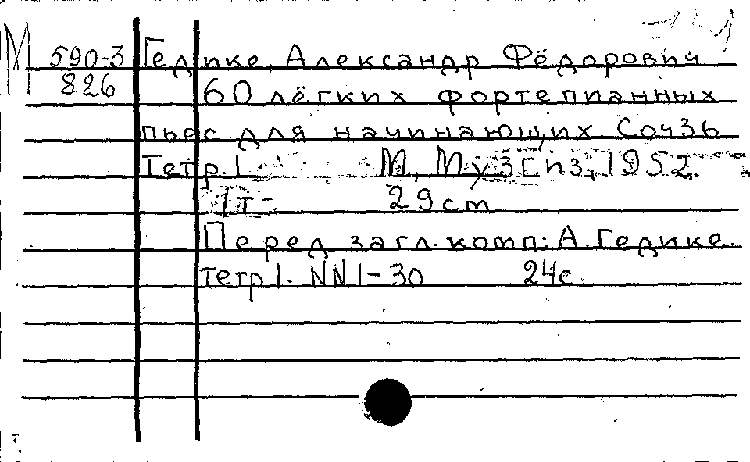 М 590-3 Гедике, Александр Фёдорович
826 60 лёгких фортепианных
пьес для начинающих Соч36
Тетр.1. М, Музгиз, 1952.
1т- 29cm
Перед загл. комп: А. Гедике
тетр1. NN1-30 24с.